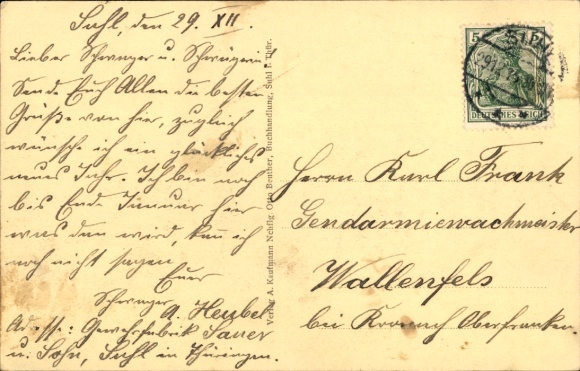 Suhl, den 29. XII.
Lieber Schwager u. Schwägerin
Sende Euch Allen die besten
Grüße von hier, zugleich
wünsche ich ein glückliches
neues Jahr. Ich bin noch
bis Ende Januar hier
was dan wird, kan ich
noch nicht sagen
Euer
Schwager
A. Heubel
Adresse: Gewehrfabrik Sauer
u. Sohn, Suhl in Thüringen.
Verlag A. Kaufmann Nchflg. Otto Beuther, Buchhandlung, Suhl i. Thür.
5
SUHL
DEUTSCHES REICH
Herrn Karl Frank
Gendarmiewachmeister
Wallenfels
bei Kronach Oberfranken.